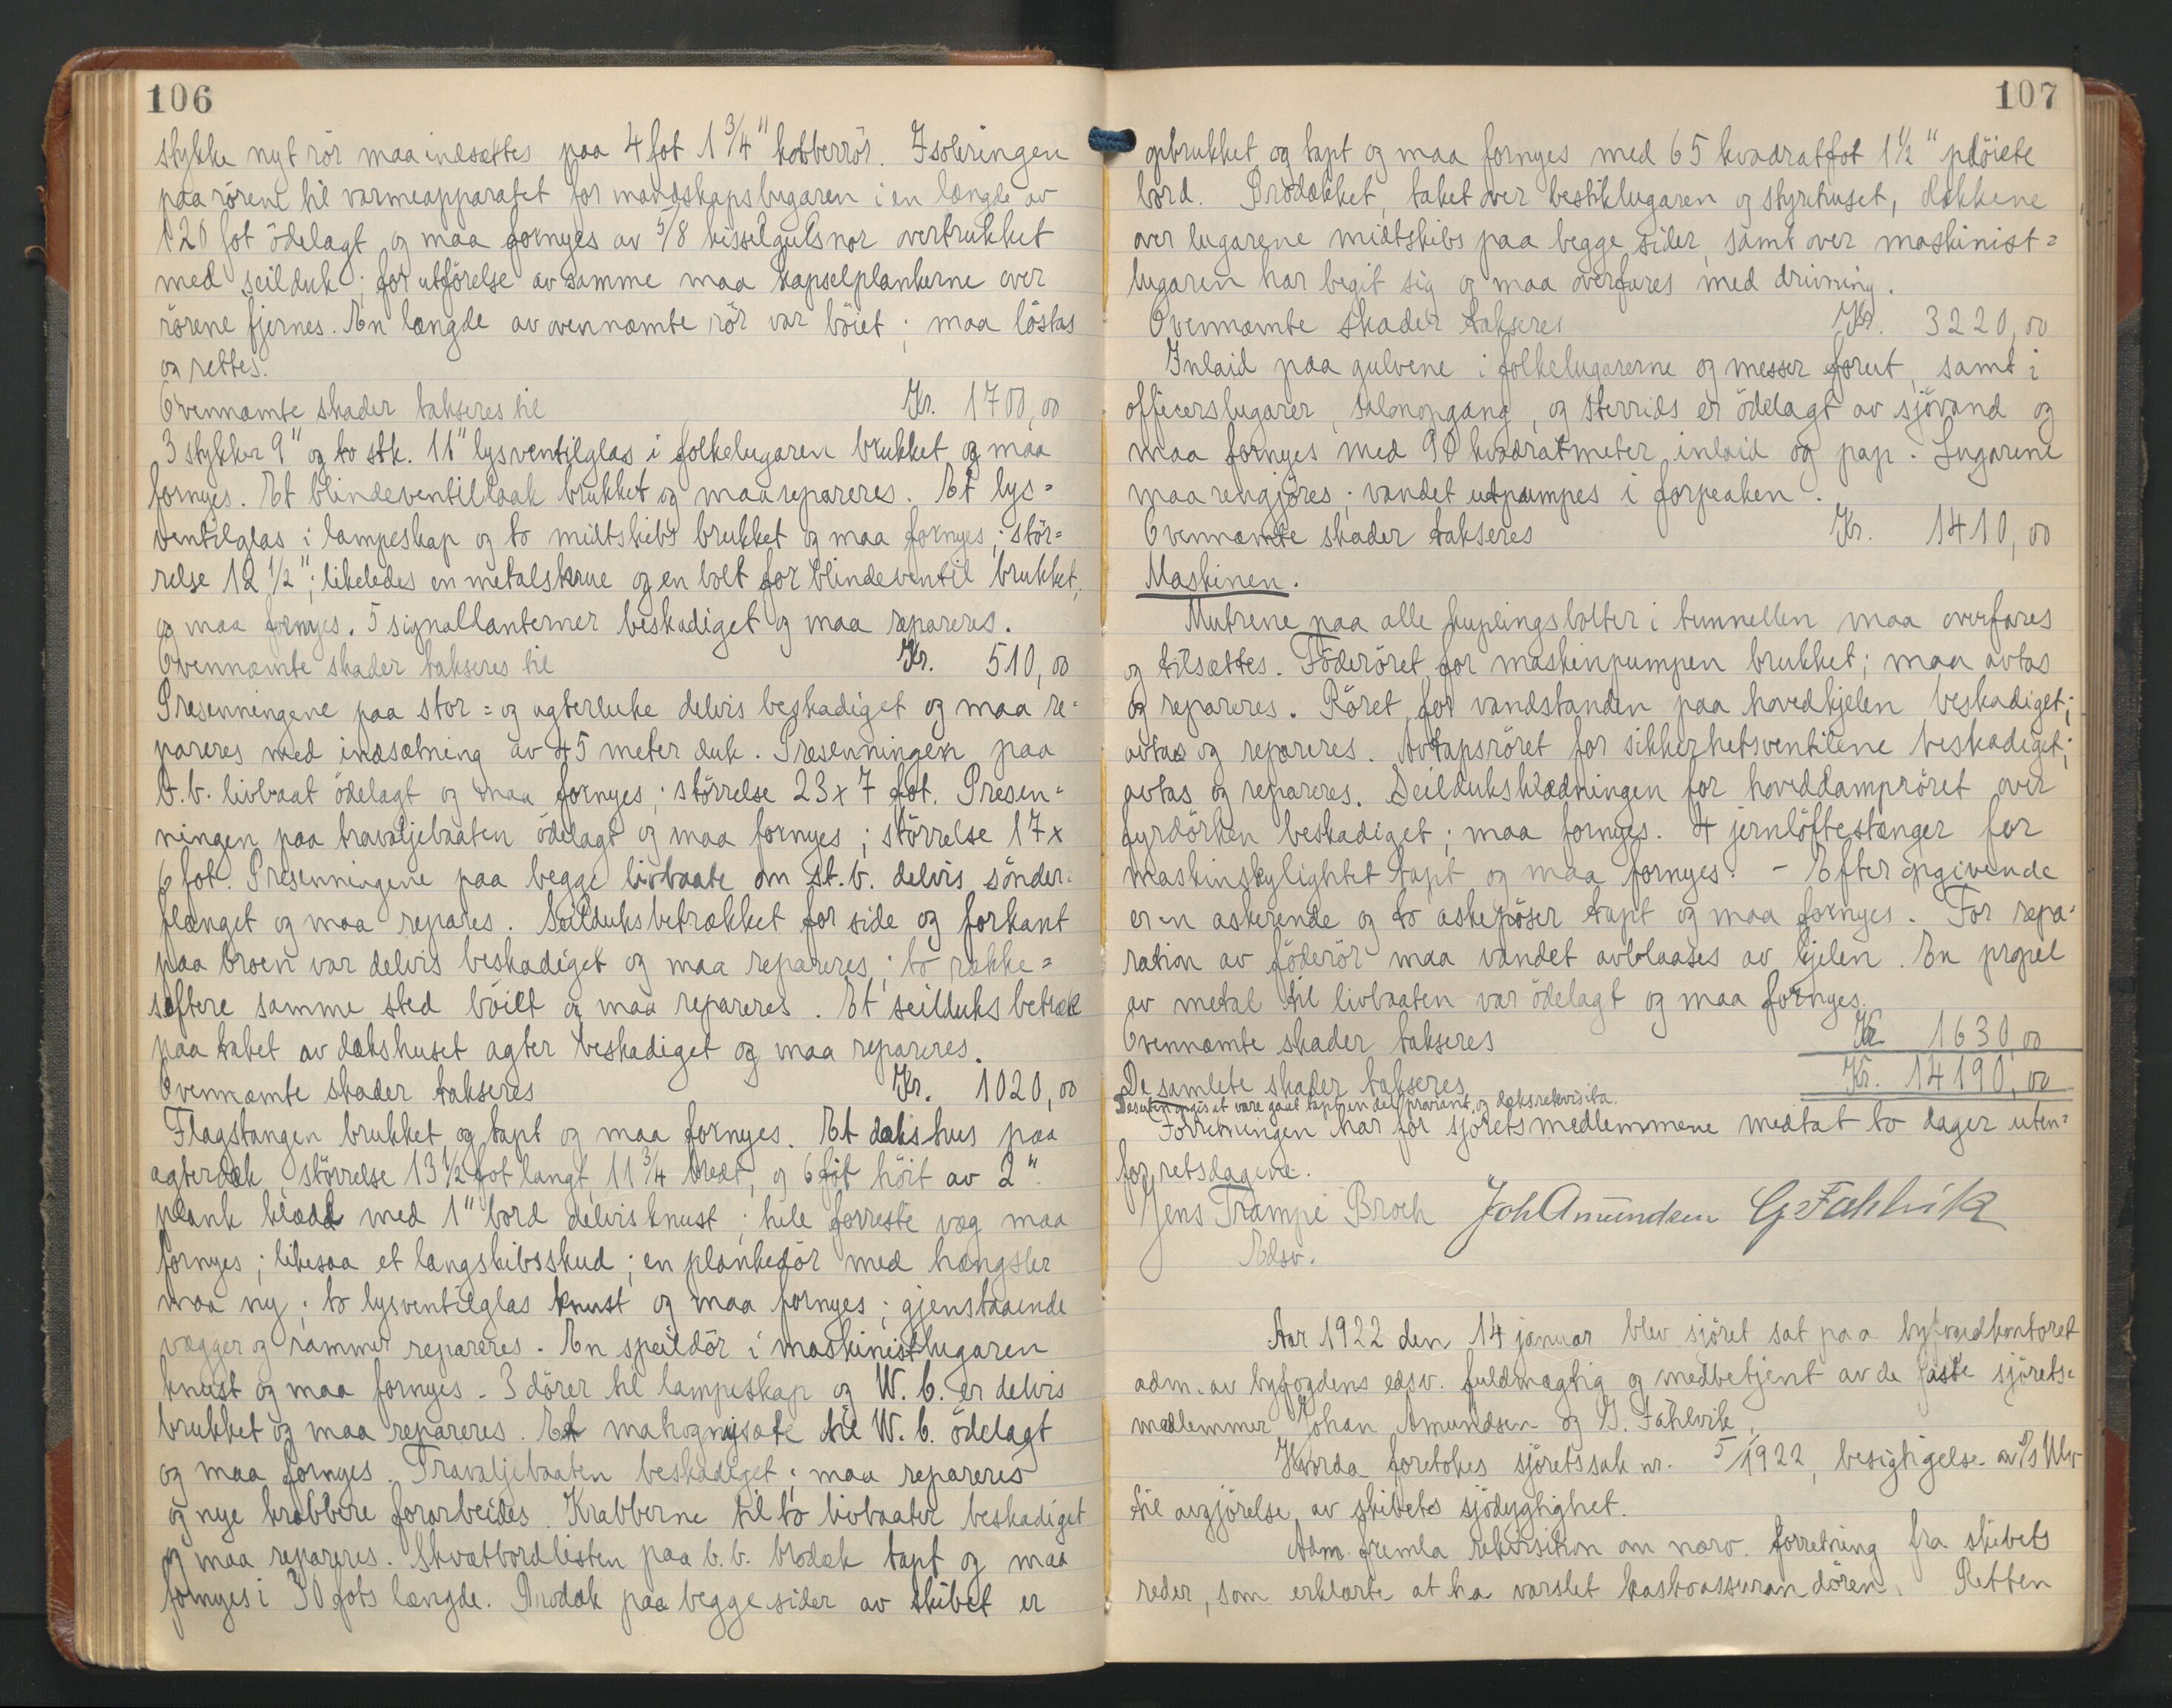 106
stykke nyt rör maa indsættes paa 4 fot 1 3/4" kobberrör. Isoleringen
paa rörene til varmeapparatet for mandskapslugaren i en længde av
120 fot ödelagt og maa fornyes av 5/8 kisselgulsnor overtrukket
med seilduk; for utförelse av samme maa kapselplankerne over
rörene fjernes. En længde av ovennæmte rör var böiet; maa löstas
og rettes.
Ovennæmte skader takseres til Kr. 1700,00
3 stykker 9" og to stk. 11" lysventilglas i folkelugaren brukket og maa
fornyes. Et blindeventillaak brukket og maa repareres. Et lys=
ventilglas i lampeskap og to midtskibs brukket og maa fornyes; stör=
relse 12 1/2"; likeledes en metalskrue og en bolt for blindeventil brukket,
og maa fornyes. 5 signallanterner beskadiget og maa repareres.
Ovennæmte skader takseres til Kr. 510,00
Presenningene paa stor= og agterluke delvis beskadiget og maa re=
pareres med indsætning av 45 meter duk. Presenningen paa
b.b. livbaat ödelagt og maa fornyes; störrelse 23 x 7 fot. Presen=
ningen paa travaljebaaten ödelagt og maa fornyes; störrelse 17 x
6 fot. Presenningene paa begge livbaate om st.b. delvis sönder=
flænget og maa repares. Seilduksbetrækket for side og forkant
paa broen var delvis beskadiget og maa repareres; to række=
søftere samme sted böiet og maa repareres. Et seilduks betræk
paa taket av dækshuset agter beskadiget og maa repareres.
Ovennæmte skader takseres Kr. 1020,00
Flagstangen brukket og tapt og maa fornyes. Et dækshus paa
agterdæk, störrelse 13 1/2 fot langt, 11 3/4 bredt, og 6 fot höit av 2"
plank klædd med 1" bord delvis knust; hele forreste væg maa
fornyes; likesaa et langskibsskud; en plankedör med hængsler
maa ny; to lysventilglas knust og maa fornyes; gjenstaaende
vægger og rammer repareres. En speildör i maskinistlugaren
knust og maa fornyes. 3 dörer til lampeskap og W. C. er delvis
brukket og maa repareres. Et mahognysæte til W. C. ödelagt
og maa fornyes. Travaljebaaten beskadiget; maa repareres
og nye krabbere forarbeides. Krabberne til to livbaater beskadiget
og maa repareres. Skvætbordlisten paa b.b. brodæk tapt og maa
fornyes i 30 fots længde. Brodæk paa begge sider av skibet er
107
opbrukket og tapt og maa fornyes med 65 kvadratfot 1 1/2" plöiete
bord. Brodækket, taket over bestiklugaren og styrehuset, dækkene
over lugarene midtskibs paa begge sider, samt over maskinist=
lugaren har begit sig og maa overfares med drivning.
Ovennæmte skader takseres Kr. 3220,00
Inlaid paa gulvene i folkelugarerne og messer forut, samt i
officerslugarer, salonopgang, og sterrids er ödelagt av sjövand og
maa fornyes med 90 kvadratmeter inlaid og pap. Lugarene
maa rengjöres; vandet utpumpes i forpeaken.
Ovennæmte skader takseres Kr. 1410,00
Maskinen.
Mutrene paa alle kuplingsbolter i tunnellen maa overfares
og tilsættes. Föderöret for maskinpumpen brukket; maa avtas
og repareres. Röret for vandstanden paa hovedkjelen beskadiget;
avtas og repareres. Avtapsröret for sikkerhetsventilene beskadiget;
avtas og repareres. Seilduksklædningen for hoveddampröret over
fyrdörken beskadiget; maa fornyes. 4 jernlöftestænger for
maskinskylightet tapt og maa fornyes. - Efter opgivende
er en askerende og to askepöser tapt og maa fornyes. For repa=
ration av föderör maa vandet avblaases av kjelen. En propel
av metal til livbaaten var ödelagt og maa fornyes.
Ovennæmte skader takseres Kr. 1630,00
De samlete skader takseres Kr. 14190,00
Desuten opgis at være gaat tapt en del proviant og dæksrekvisita.
Forretningen har for sjöretsmedlemmene medtat to dager uten=
for retsdagene.
Jens Trampe Broch Joh Amundsen G Fahlvik
Edsv.
Aar 1922 den 14 januar blev sjöret sat paa byfogedkontoret
adm. av byfogdens edsv. fuldmægtig og medbetjent av de faste sjörets=
medlemmer Johan Amundsen og G. Fahlvik.
Hvorda foretokes sjöretssak nr. 5/1922, besigtigelse av D/s Ulv
til avgjörelse av skibets sjödygtighet.
Adm. fremla rekvisition om nærv. forretning fra skibets
reder, som erklærte at ha varslet kaskoassurandören. Retten